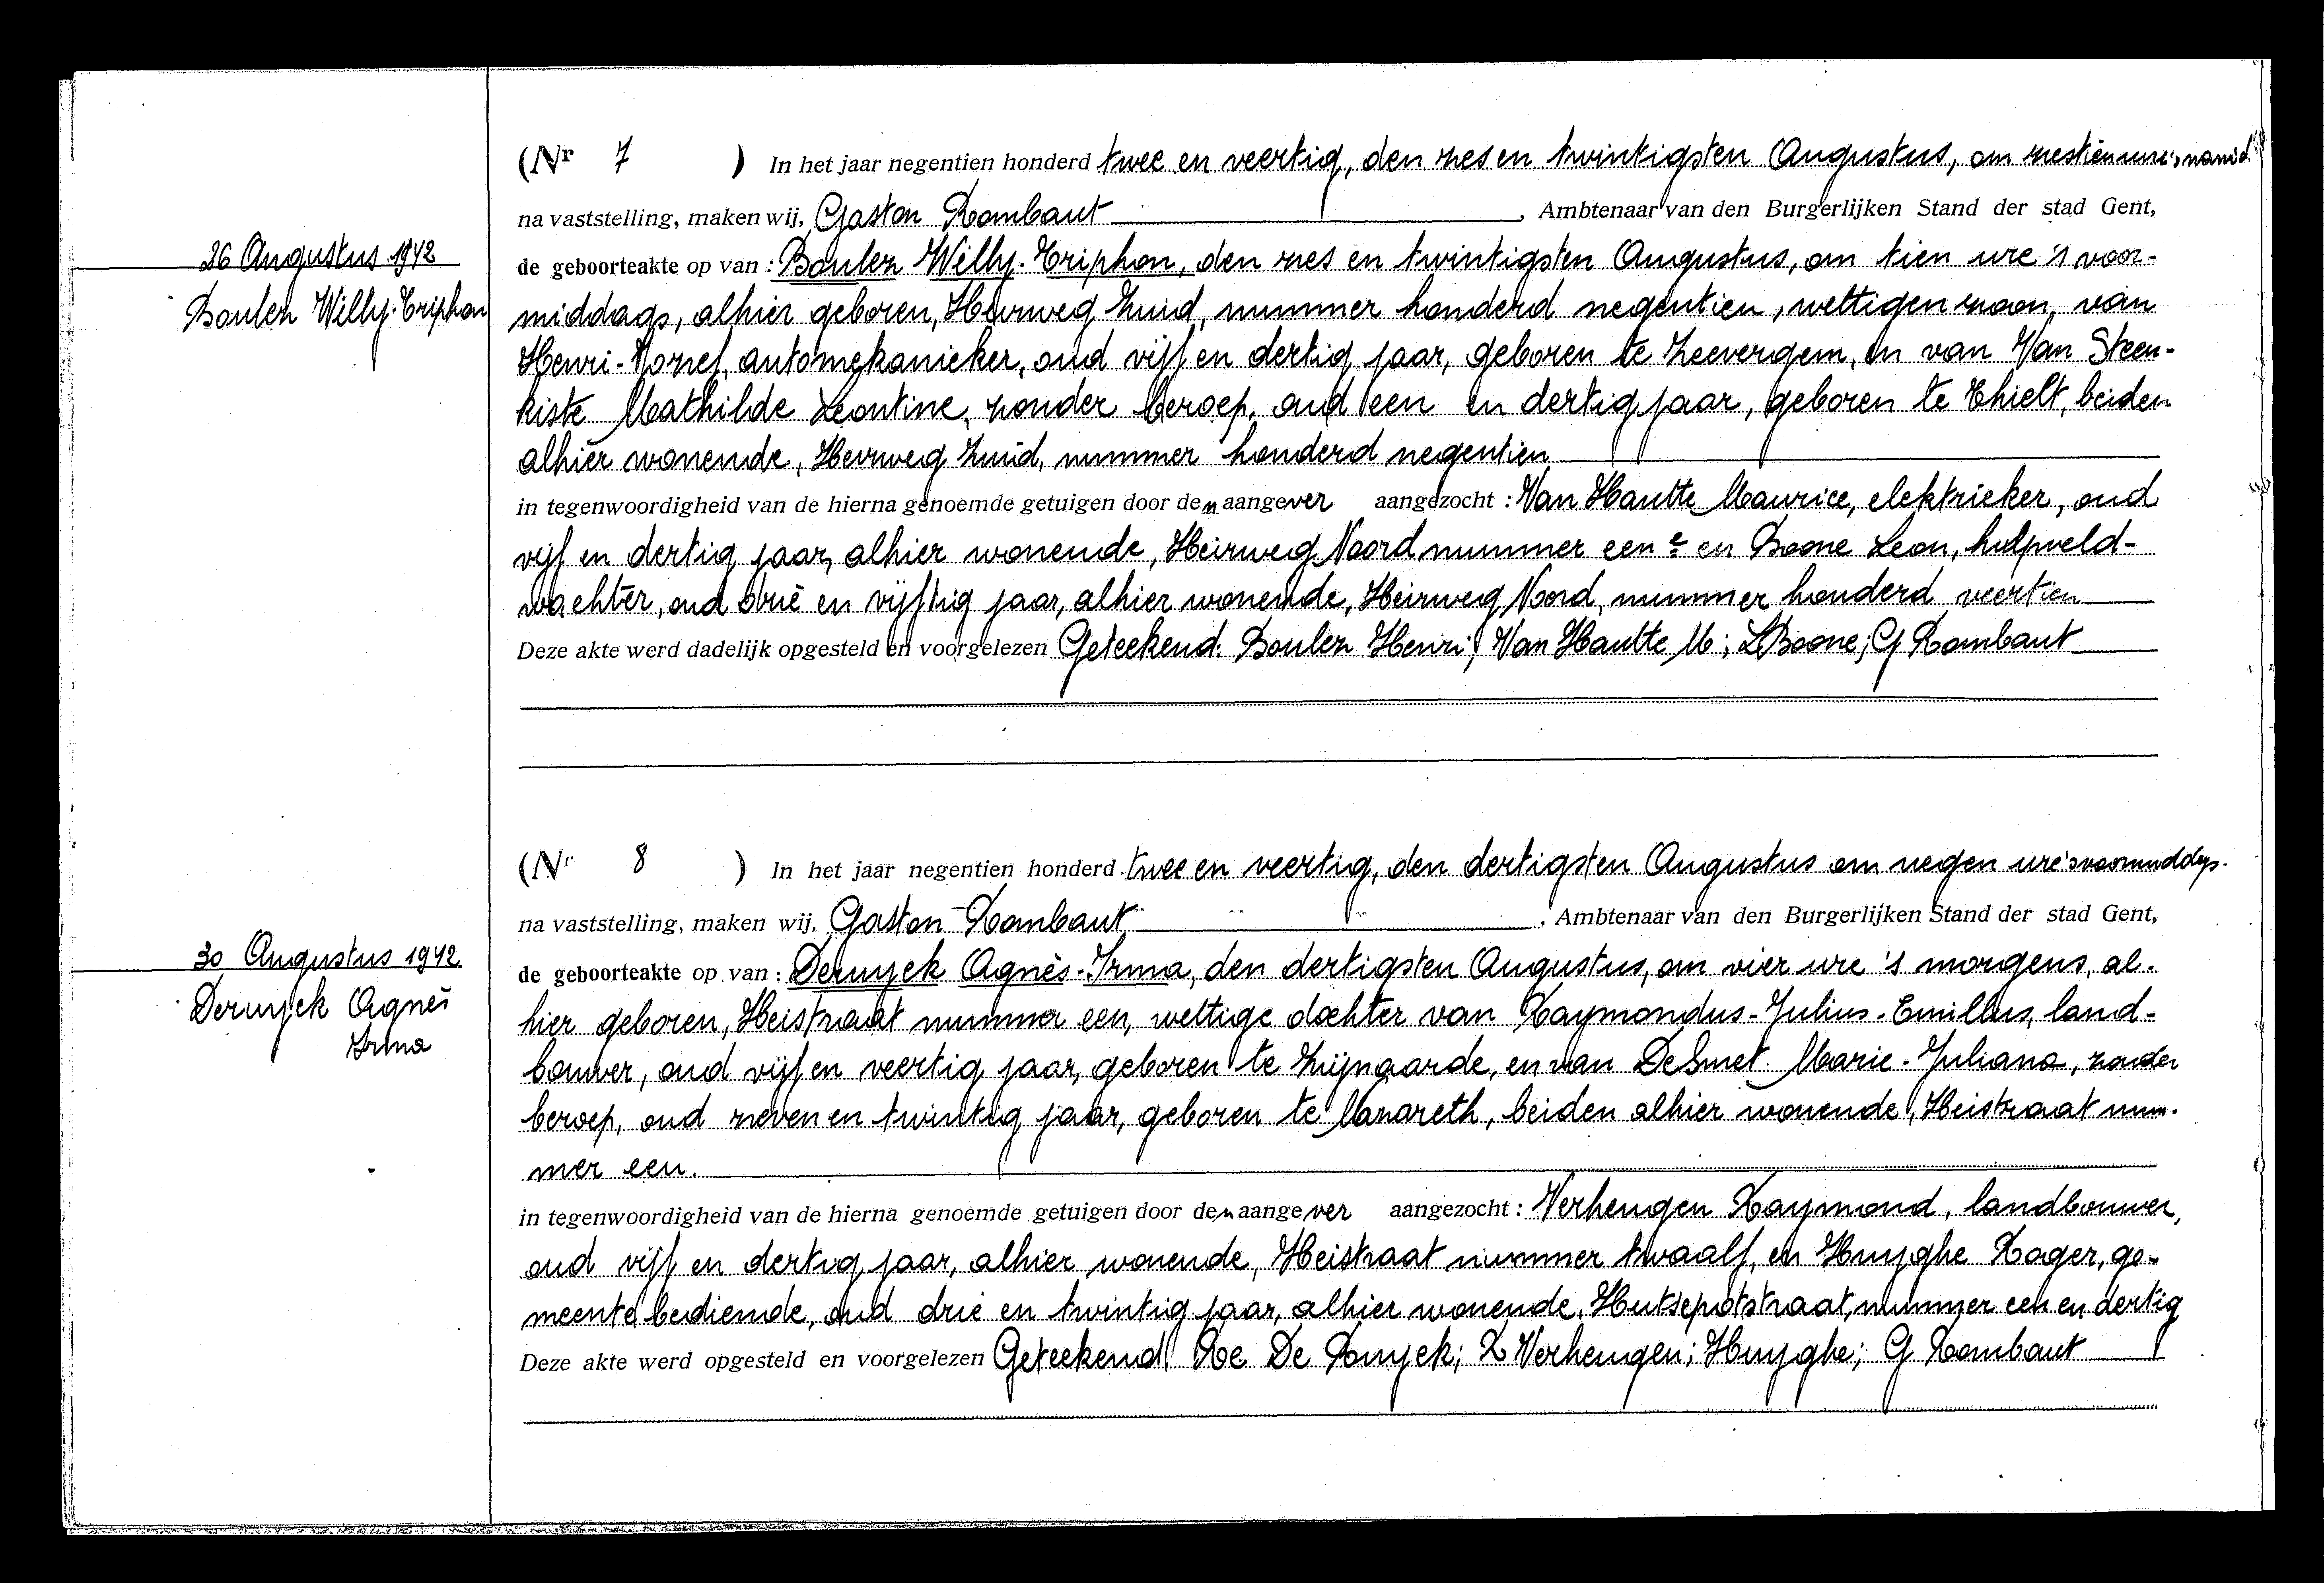 (Nr 7 ) In het jaar negentien honderd twee en veertig, den zes en twintigsten Augustus, om zestien ure 's namid.
na vaststelling, maken wij, Gaston Rombaut, Ambtenaar van den Burgerlijken Stand der stad Gent,
26 Augustus 1942
Boulez Willy-Triphon
de geboorteakte op van : Boulez Willy-Triphon, den zes en twintigsten Augustus, om tien ure 's voor-
middags, alhier geboren, Heirweg Zuid, nummer honderd negentien, wettigen zoon, van
Henri-Jozef, automekanieker, oud vijf en dertig jaar, geboren te Zeevergem, en van Van Steen-
kiste Mathilde Leontine, zonder beroep, oud een en dertig jaar, geboren te Thielt, beiden
alhier wonende, Heirweg Zuid, nummer honderd negentien
in tegenwoordigheid van de hierna genoemde getuigen door den aangever aangezocht : Van Hautte Maurice, elektrieker, oud
vijf en dertig jaar, alhier wonende, Heirweg Noord nummer een e en Boone Leon, hulpveld-
wachter, oud drie en vijftig jaar, alhier wonende, Heirweg Noord, nummer honderd veertien
Deze akte werd dadelijk opgesteld en voorgelezen Geteekend: Boulez Henri; Van Hautte M; L Boone; G Rombaut
(Nr 8 ) In het jaar negentien honderd twee en veertig, den dertigsten Augustus om negen ure 's voormiddags.
na vaststelling, maken wij, Gaston Rombaut, Ambtenaar van den Burgerlijken Stand der stad Gent,
30 Augustus 1942
Deruyck Agnès
Irma
de geboorteakte op van : Deruyck Agnès-Irma, den dertigsten Augustus, om vier ure 's morgens, al-
hier geboren, Heistraat nummer een, wettige dochter van Raymondus-Julius-Emilius, land-
bouwer, oud vijf en veertig jaar, geboren te Zwijnaarde, en van De Smet Marie-Juliana, zonder
beroep, oud zeven en twintig jaar, geboren te Nazareth, beiden alhier wonende, Heistraat num-
mer een.
in tegenwoordigheid van de hierna genoemde getuigen door den aangever aangezocht : Verheugen Raymond, landbouwer,
oud vijf en dertig jaar, alhier wonende, Heistraat nummer twaalf, en Huyghe Roger, ge-
meente bediende, oud drie en twintig jaar, alhier wonende, Hutsepotstraat, nummer een en dertig
Deze akte werd opgesteld en voorgelezen Geteekend: Re De Ruyck; R Verheugen; Huyghe; G Rombaut